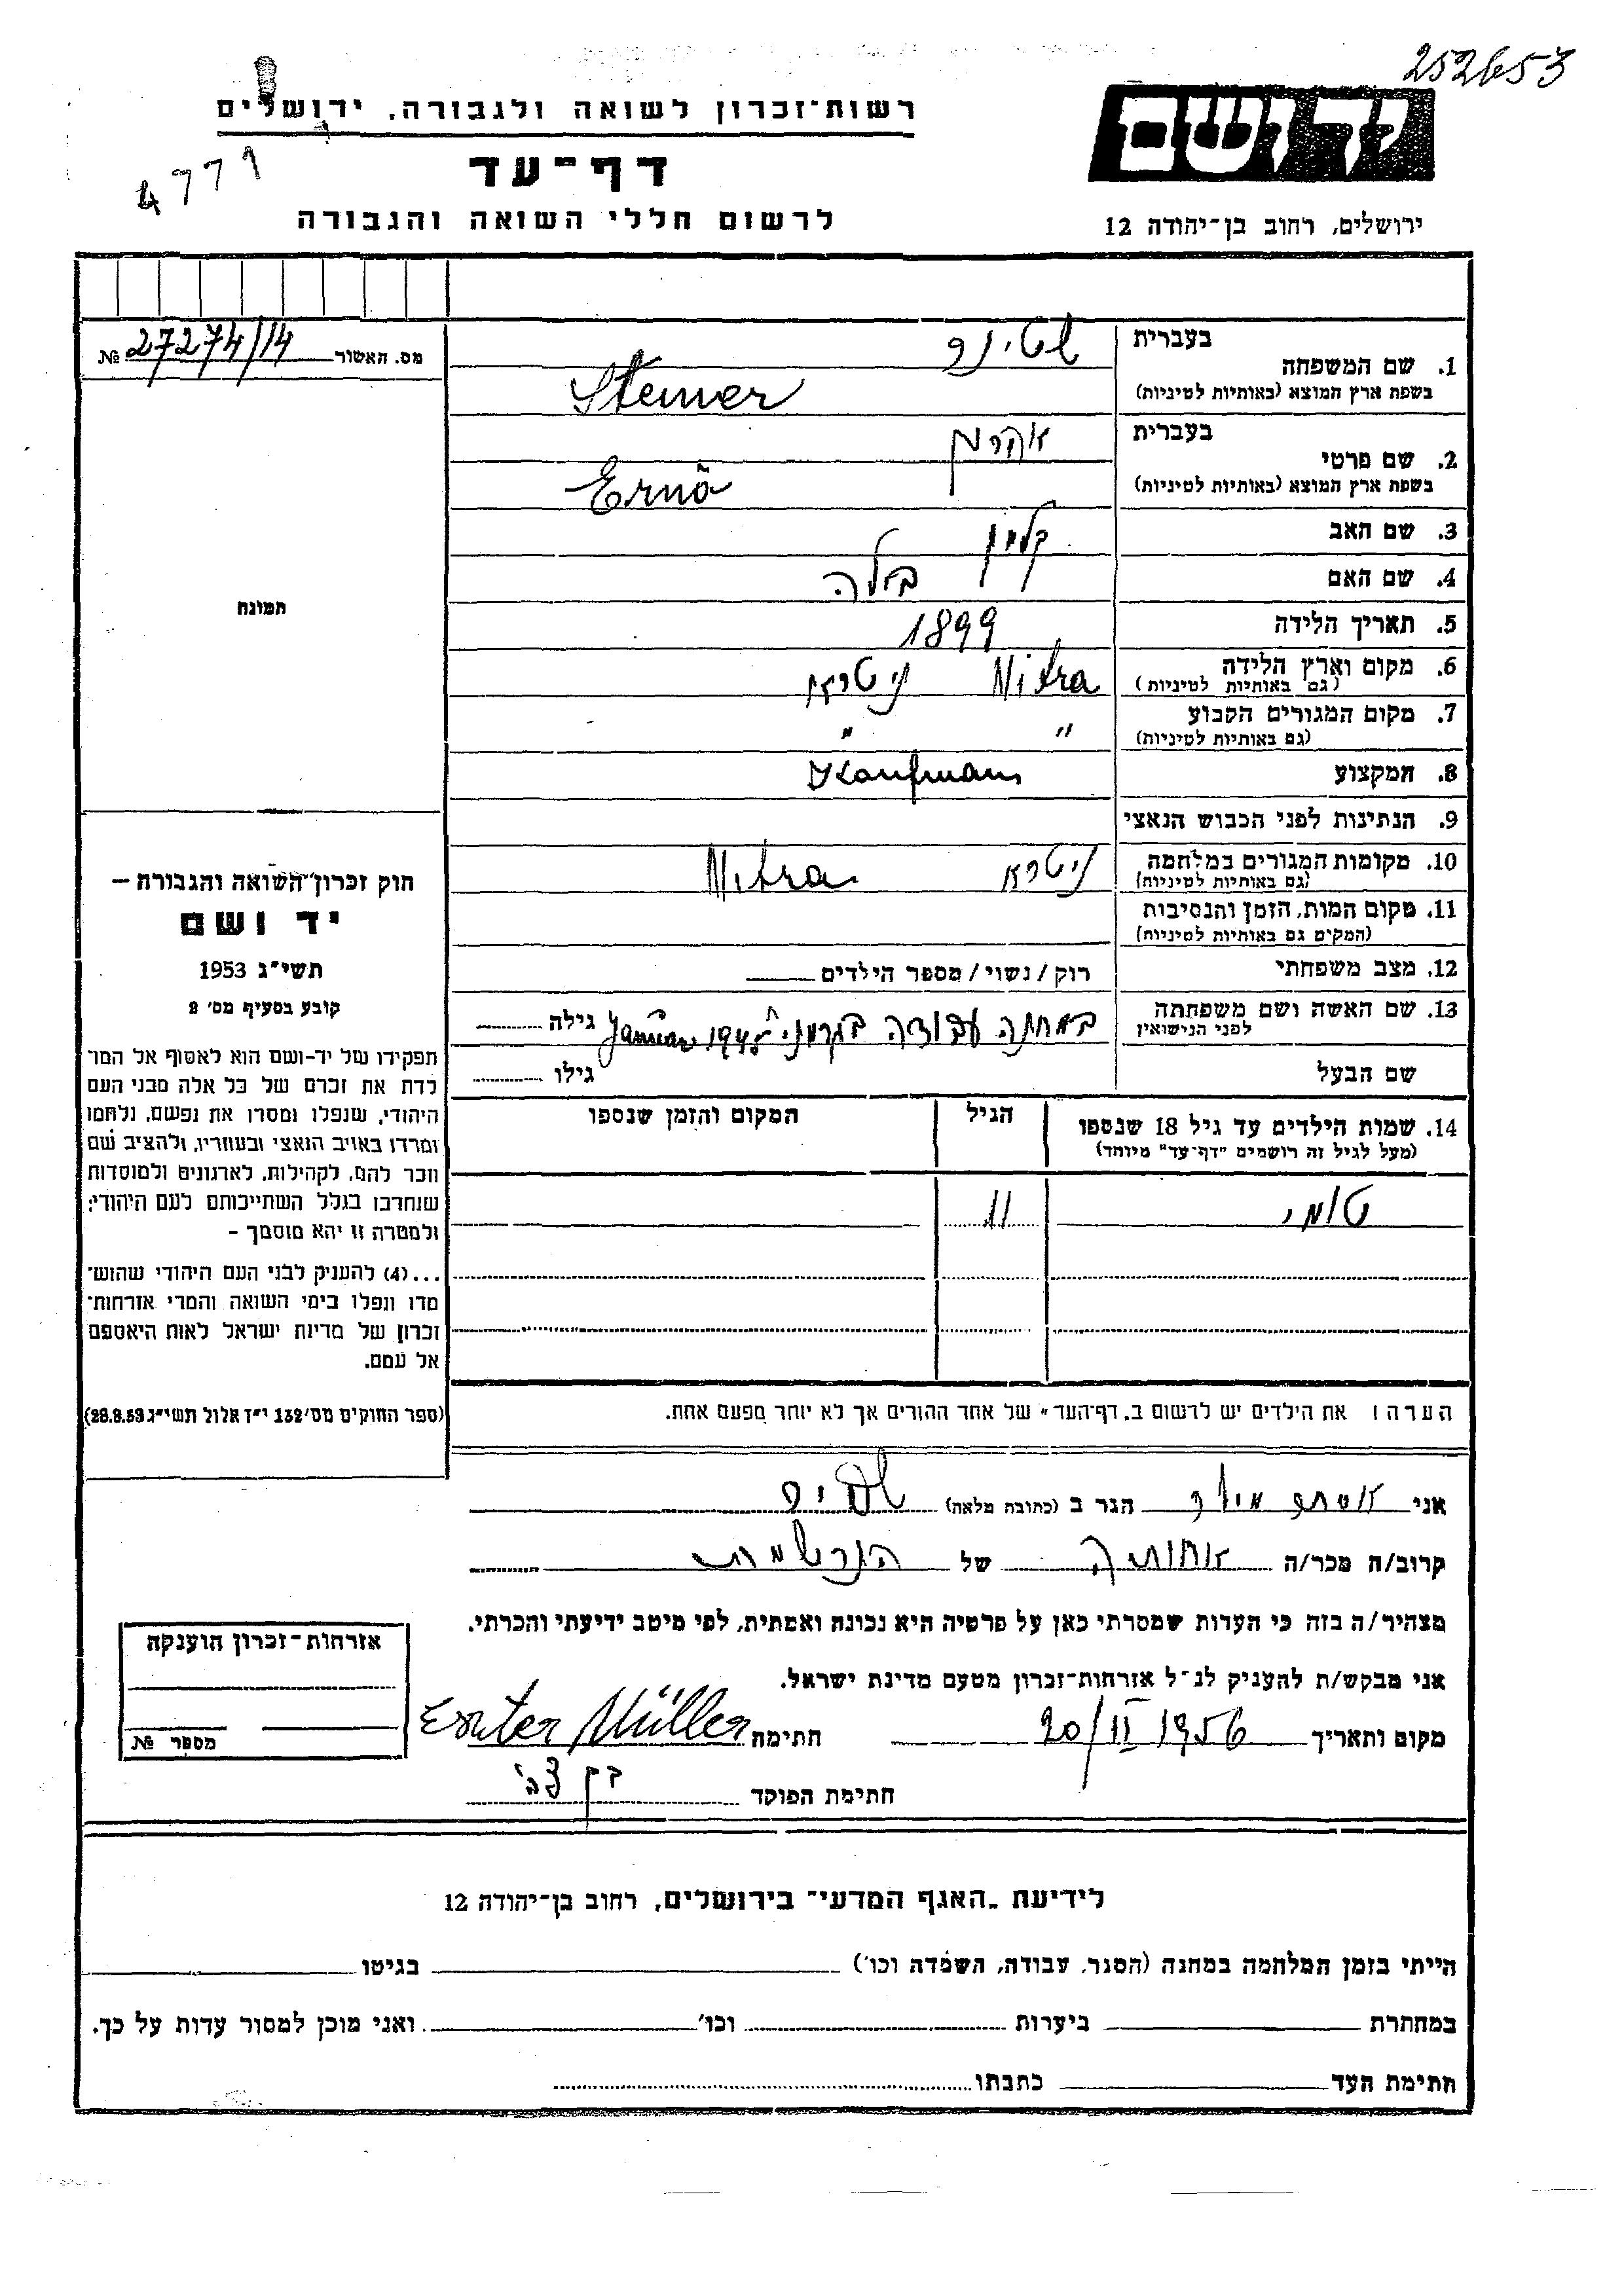 252653
רשות־זכרון לשואה ולגבורה, ירושלים
יד ושם
דף־עד
4771
לרשום חללי השואה והגבורה
ירושלים, רחוב בן־יהודה 12
מס. האשור 27274/14 №
תמונה
חוק זכרון השואה והגבורה –
יד ושם
תשי"ג 1953
קובע בסעיף מס' 2
תפקידו של יד-ושם הוא לאסוף אל המו־
לדת את זכרם של כל אלה מבני העם
היהודי, שנפלו ומסרו את נפשם, נלחמו
ומרדו באויב הנאצי ובעוזריו, ולהציב שם
וזכר להם, לקהילות, לארגונים ולמוסדות
שנחרבו בגלל השתייכותם לעם היהודי;
ולמטרה זו יהא מוסמך –
...(4) להעניק לבני העם היהודי שהוש־
מדו ונפלו בימי השואה והמרי אזרחות־
זכרון של מדינת ישראל לאות היאספם
אל עמם.
(ספר החוקים מס' 132 י"ז אלול תשי"ג 28.8.53)
1. שם המשפחה
בעברית שטינר
בשפת ארץ המוצא (באותיות לטיניות) Steiner
2. שם פרטי
בעברית אהרמן
בשפת ארץ המוצא (באותיות לטיניות) Ernő
3. שם האב קלמן
4. שם האם בילה
5. תאריך הלידה 1899
6. מקום וארץ הלידה Nitra ניטרא
(גם באותיות לטיניות)
7. מקום המגורים הקבוע " "
(גם באותיות לטיניות)
8. המקצוע Kaufmann
9. הנתינות לפני הכבוש הנאצי
10. מקומות המגורים במלחמה ניטרא Nitra
(גם באותיות לטיניות)
11. מקום המות, הזמן והנסיבות
(המקום גם באותיות לטיניות)
12. מצב משפחתי רוק / נשוי / מספר הילדים
13. שם האשה ושם משפחתה
לפני הנישואין במחנה עבודה בגרמני' Januar 1945 גילה
שם הבעל גילו
14. שמות הילדים עד גיל 18 שנספו הגיל המקום והזמן שנספו
(מעל לגיל זה רושמים "דף־עד" מיוחד)
טומי 11
הערה: את הילדים יש לרשום ב"דף־העד" של אחד ההורים אך לא יותר מפעם אחת.
אני אסתר מילר הגר ב (כתובת מלאה)
קרוב/ה מכר/ה אחותה של הנרשמת
מצהיר/ה בזה כי העדות שמסרתי כאן על פרטיה היא נכונה ואמתית, לפי מיטב ידיעתי והכרתי.
אני מבקש/ת להעניק לנ"ל אזרחות־זכרון מטעם מדינת ישראל.
מקום ותאריך 20/II 1956 חתימה Ester Müller
חתימת הפוקד
אזרחות־זכרון הוענקה
מספר №
לידיעת "האגף המדעי" בירושלים, רחוב בן־יהודה 12
הייתי בזמן המלחמה במחנה (הסגר, עבודה, השמדה וכו') בגיטו
במחתרת ביערות וכו' ואני מוכן למסור עדות על כך.
חתימת העד כתבתו